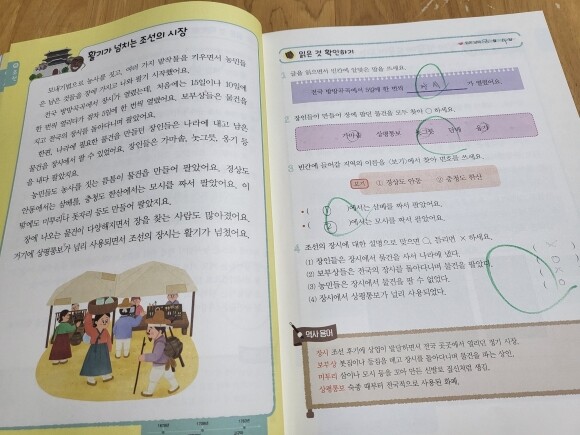 활기가 넘치는 조선의 시장
모내기법으로 농사를 짓고, 여러 가지 밭작물을 키우면서 농민들
은 남은 것들을 장에 가지고 나와 팔기 시작했어요.
전국 방방곡곡에서 장시가 열렸는데, 처음에는 15일이나 10일에
한 번씩 열리다가 점차 5일에 한 번씩 열렸어요. 보부상들은 물건을
지고 전국의 장시를 돌아다니며 팔았어요.
한편, 나라에 필요한 물건을 만들던 장인들은 나라에 내고 남은
물건을 장시에서 팔 수 있었어요. 장인들은 가마솥, 놋그릇, 옹기 등
을 내다 팔았지요.
농민들도 농사를 짓는 틈틈이 물건을 만들어 팔았어요. 경상도
안동에서는 삼베를, 충청도 한산에서는 모시를 짜서 팔았어요. 이
밖에도 미투리나 돗자리 등도 만들어 팔았지요.
장에 나오는 물건이 다양해지면서 장을 찾는 사람도 많아졌어요.
거기에 상평통보가 널리 사용되면서 조선의 장시는 활기가 넘쳤어요.
읽은 것 확인하기
1 글을 읽으면서 빈칸에 알맞은 말을 쓰세요.
전국 방방곡곡에서 5일에 한 번씩 가 열렸어요.
2 장인들이 만들어 장에 팔던 물건을 모두 찾아 ○ 하세요.
가마솥 상평통보 놋그릇 담배 옹기
3 빈칸에 들어갈 지역의 이름을 〈보기〉에서 찾아 번호를 쓰세요.
보기 ① 경상도 안동 ② 충청도 한산
• ( ① )에서는 삼베를 짜서 팔았어요.
• ( ② )에서는 모시를 짜서 팔았어요.
4 조선의 장시에 대한 설명으로 맞으면 ○, 틀리면 × 하세요.
(1) 장인들은 장시에서 물건을 사서 나라에 냈다. ( X )
(2) 보부상들은 전국의 장시를 돌아다니며 물건을 팔았다. ( O )
(3) 농민들은 장시에서 물건을 팔 수 없었다. ( X )
(4) 장시에서 상평통보가 널리 사용되었다. ( O )
역사 용어
장시 조선 후기에 상업이 발달하면서 전국 곳곳에서 열리던 정기 시장.
보부상 봇짐이나 등짐을 메고 장시를 돌아다니며 물건을 파는 상인.
미투리 삼이나 모시 등을 꼬아 만든 신발로 짚신처럼 생김.
상평통보 숙종 때부터 전국적으로 사용된 화폐.